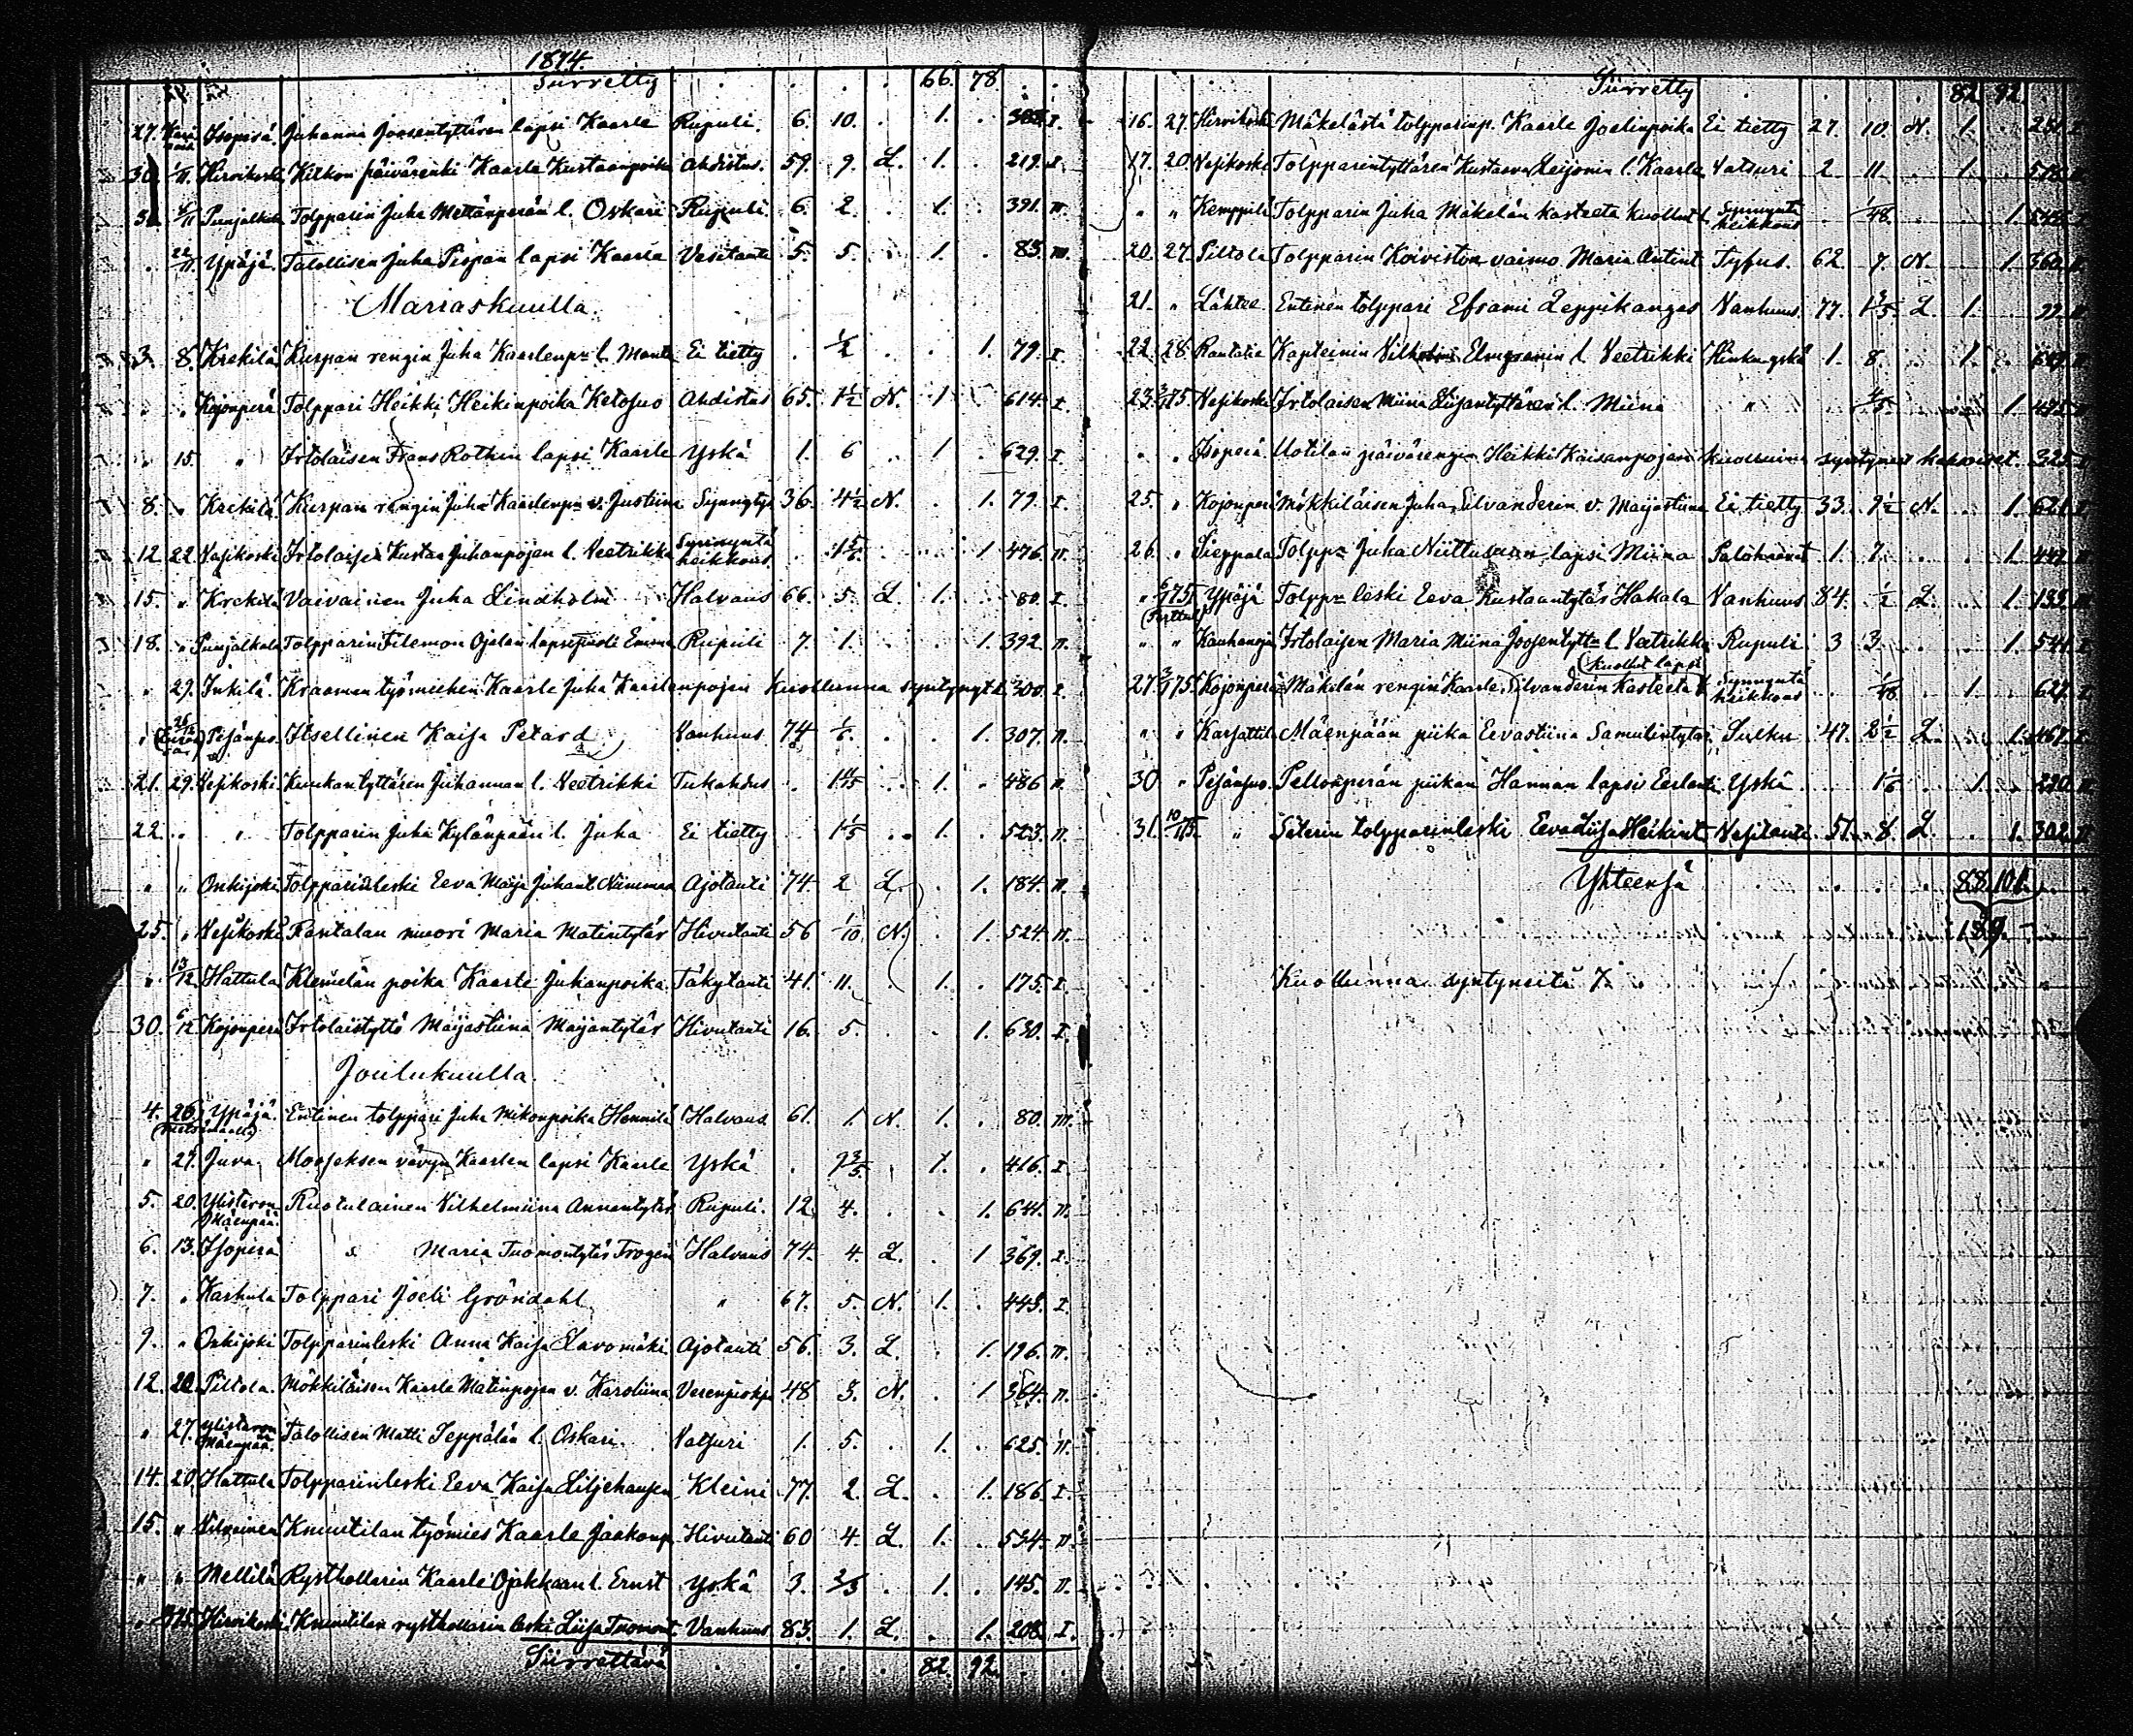 1874.
Siirretty 66. 78.
27. Isoperä. Juhanna Joosentyttären lapsi Kaarle Rupuli. 6. 10. 1. I.
30. 1/11. Hirvikoski Kirkon päivärenki Kaarle Kustaanpoika Ahdistus. 59. 9. L. 1. 219. I.
Punjalkula Tolpparin Juha Mettänperän l. Oskari Rupuli. 6. 2. 1. 391. II.
22/11. Ypäjä. Talollisen Juha Pispan lapsi Kaarle Vesitauti 5. 5. 1. 83. III.
Marraskuulla.
3. 8. Krekilä Kurpan rengin Juha Kaarlenp:n l. Manta Ei tietty 1/2 1. 79. I.
" " Kojonperä Tolppari Heikki Heikinpoika Ketojuo Ahdistus 65. 1 1/2 N. 1 614. I.
" 15. " Irtolaisen Frans Rothin lapsi Kaarle Yskä 1. 6 1 629. I.
8. " Krekilä Kurpan rengin Juha Kaarlenp:n v. Justiina Synnytys 36. 4 1/2 N. 1. 79. I.
12 22. Vesikoski Irtolaisen Kustaa Juhanpojan l. Veetrikki Synnynta heikkous 1. 476. II.
15. " Krekilä Vaivainen Juha Lindholm Halvaus 66. 5. L. 1. 80. I.
18. " Punjalkula Tolpparin Filemon Ojalan lapsipuoli Emma Rupuli 7. 1. 1. 392. II.
" 29. Inkilä. Kraamen työmiehen Kaarle Juha Kaarlenpojan kuolleena syntynyt l. 300. I.
" Pejänsuo. Itsellinen Kaisa Petard Vanhuus 74 1. 307. II.
21. 29. Vesikoski Kuukan tyttären Juhannan l. Veetrikki Tukahdus 1. 486 II.
22. " " Tolpparin Juha Kylänpään l. Juha Ei tietty 1 1/5 1. 523. II.
" " Orikjoki Tolpparinleski Eeva Maija Juhant. Nummaa Ajotauti 74 2 L. 1. 184. II.
25. " Vesikoski Rantalan muori Maria Matintytär Hivutauti 56 1/10 N. 1. 524. II.
" 13/12 Hattula Klemelän poika Kaarle Juhanpoika Täkytauti 41. 11. 1. 175. I.
30. 6/12. Kojonperä Irtolaistyttö Maijastiina Maijantytär Hivutauti 16. 5. 1. 630. I.
Joulukuulla.
4. 26. Ypäjä. Entinen tolppari Juha Mikonpoika Hennilä Halvaus. 61. 1. N. 1. 80. III.
" 27. Juva Moosеksen vävyn Kaarlen lapsi Kaarle Yskä 7 3/5. 1. 416. I.
5. 20. Ylistaron Mäenpää. Ruotulainen Vilhelmiina Annantytär Rupuli. 12. 4. 1. 644. II.
6. 13. Isoperä " Maria Tuomontytär Trogen Halvaus 74. 4. L. 1 369. I.
7. " Karhula Tolppari Joeli Gröndahl " 67. 5. N. 1. 443. I.
9. " Orikjoki Tolpparinleski Anna Kaisa Lavomäki Ajotauti 56. 3. L. 1. 196. II.
12. 20. Piltola. Mökkiläisen Kaarle Matinpojan v. Karoliina 48 3. N. 1 364. II.
" 27. Ylistaron Mäenpää. Talollisen Matti Seppälän l. Oskari. Vatsuri 1. 5. 1. 625. II.
14. 20. Hattula Tolpparinleski Eeva Kaisa Liljehansen Kleini 77. 2. L. 1. 186. I.
15. " Vilvainen Knuutilan työmies Kaarle Jaakonp. Hivutauti 60 4. L. 1. 534. II.
" " Mellilä Rysthollarin Kaarle Ojakkaan l. Ernst Yskä 3. 2/3 1. 145. II.
" Hirvikoski. Knuutilan rysthollarin leski Liisa Tuomont. Vanhuus 83. 1. L. 1. 208. I.
Siirrettävä 82. 92.
Siirretty 82. 92.
16. 27. Hirvikoski Mäkelästä tolpparinp. Kaarle Joelinpoika Ei tietty 27. 10. N. 1.
17. 20. Vesikoski Tolpparintyttären Kustaava Leijonin l. Kaarle Vatsuri 2. 11. 1.
" " Kemppilä Tolpparin Juha Mäkelän kasteeta kuollut l. Synnynta heikkous 1/48. 1.
20. 27. Piltola Tolpparin Koiviston vaimo Maria Antint. Tyfus. 62. 7. N. 1. 360.
21. " Lähtee Entinen tolppari Efraimi Leppikangas Vanhuus. 77. L. 1.
22. 28. Rantala Kapteinin Vilhelmi Elmgrenin l. Veetrikki Hinkuyskä 1. 8. 1.
23. Vesikoski Irtolaisen Miina Liisantyttären l. Miina " 4/5. 1. 475.
" " Isoperä. Uotilan päivärengin Heikki Kaisanpojan kuolleina syntyneet kaksoiset. 325.
25. " Kojonperä Mökkiläisen Juha Silvanderin v. Maijastiina Ei tietty 33. 9 1/2 N. 1. 621.
26. " Sieppala Tolpp:n Juha Niittusuun lapsi Miina Palohaavat 1. 7. 1. 447.
" Ypäjä Tolpp:n leski Eeva Kustaantytär Hakala Vanhuus 84. 1/2 L. 1. 133.
" " Kauhanoja Irtolaisen Maria Miina Joosentytt:n l. Veetrikka Rupuli 3 3. 1. 544.
27. Kojonperä Mäkelän rengin Kaarle Silvanderin kasteeta (kuollut lapsi Synnyntä heikkous 1/48. 1. 627.
" " Karjattila Mäenpään piika Eevastiina Samulintytär. Sulku 47. 2 1/2 L. 1. 467.
30 " Pejänsuo. Pellonperän piikan Hannan lapsi Eerlanti Yskä 1/6 1. 290.
31. " Siterin tolpparinleski Eeva Liisa Heikint. Vesitauti 51. 8. L. 1. 302.
Yhteensä 88. 101.
189.
Kuolleinna syntyneitä 7.